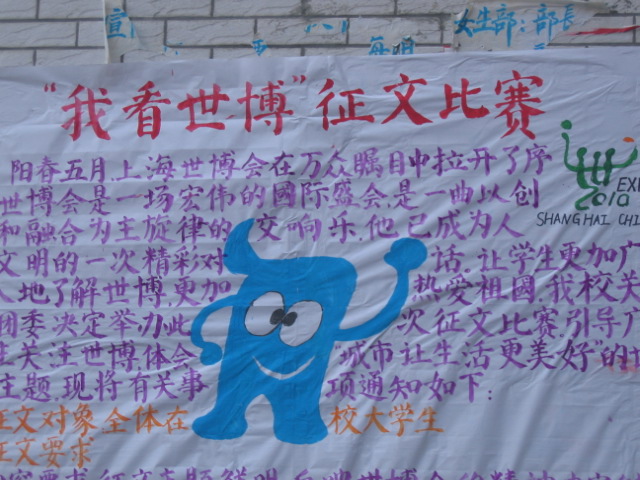 女生部：部長
"我看世博"征文比赛
EXP
2010
SHANGHAI CHI
阳春五月,上海世博会在万众瞩目中拉开了序
世博会是一场宏伟的國际盛会,是一曲以创
和融合为主旋律的交响乐,他已成为人
文明的一次精彩对话,让学生更加广
地了解世博,更加热爱祖國,我校关
团委决定举办此次征文比赛,引导广
关注世博,体会城市让生活更美好"的
主题,现将有关事项通知如下:
征文对象全体在校大学生
征文要求